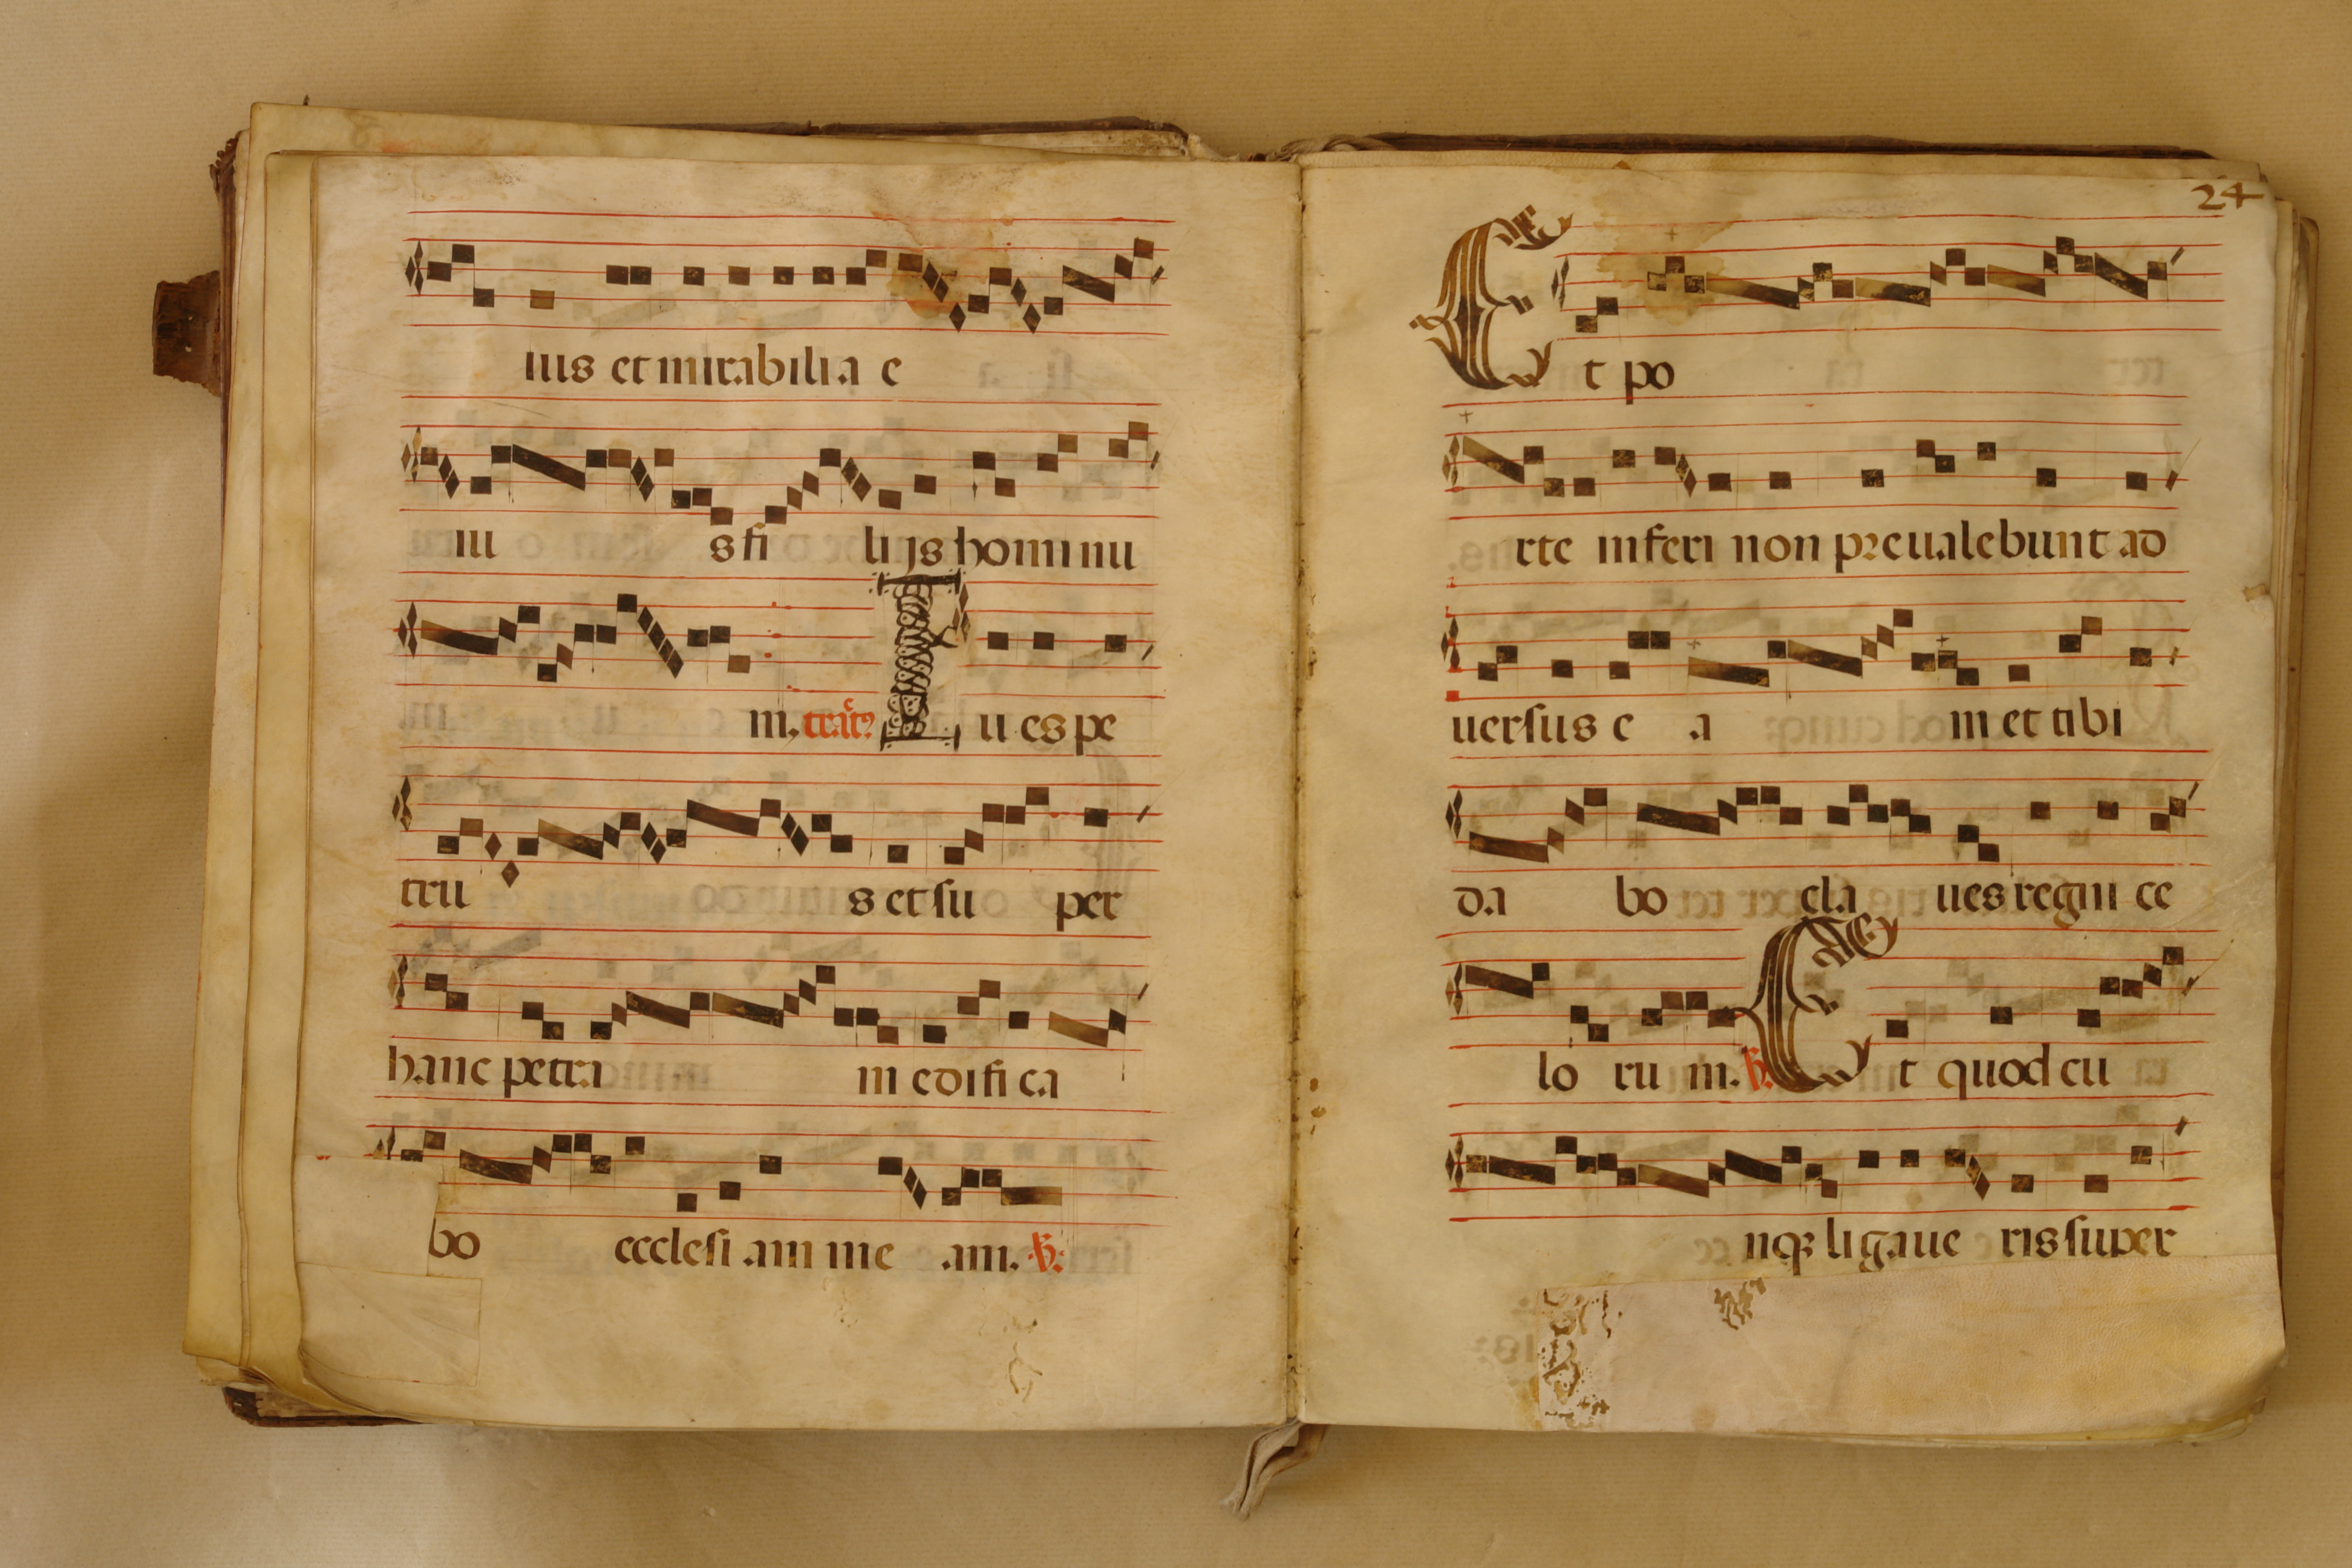 ius et mirabilia e
iu s fi lijs hominu
m. tract9 Tu es pe
tru s et su per
hanc petra m edifi ca
bo ecclesi am me am. ℣.
24
Et po
rte inferi non preualebunt ad
uersus e a m et tibi
da bo cla ues regni ce
lo ru m. ℣. Et quod cu
nqz ligaue ris super